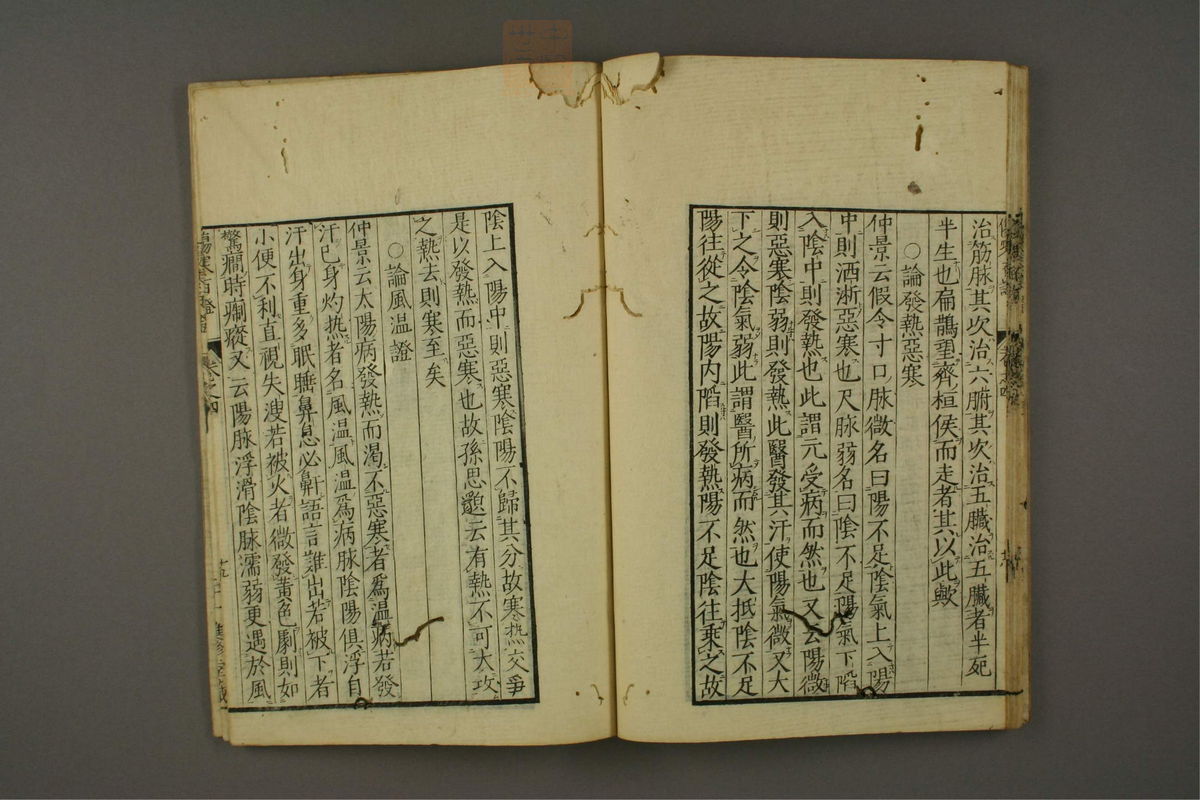 治筋脉其次治六腑其次治五臟治五臟者半死
半生也扁鵲望齊桓侯而走者其以此歟
○論發熱惡寒
仲景云假令寸口脉微名曰陽不足陰氣上入陽
中則洒淅惡寒也尺脉弱名曰陰不足陽氣下陷
入陰中則發熱也此謂元受病而然也又云陽微
則惡寒陰弱則發熱此醫發其汗使陽氣微又大
下之令陰氣弱此謂醫所病而然也大抵陰不足
陽往從之故陽内陷則發熱陽不足陰往乘之故
陰上入陽中則惡寒陰陽不歸其分故寒热交爭
是以發熱而惡寒也故孫思邈云有熱不可大攻
之熱去則寒至矣
○論風温證
仲景云太陽病發热而渴不惡寒者爲温病若發
汗已身灼热者名風温風温爲病脉陰陽俱浮自
汗出身重多眠睡鼻息必鼾語言難出若被下者
小便不利直視失溲若被火者微發黄色劇則如
驚癇時瘈瘲又云陽脉浮滑陰脉濡弱更遇於風
卷之四